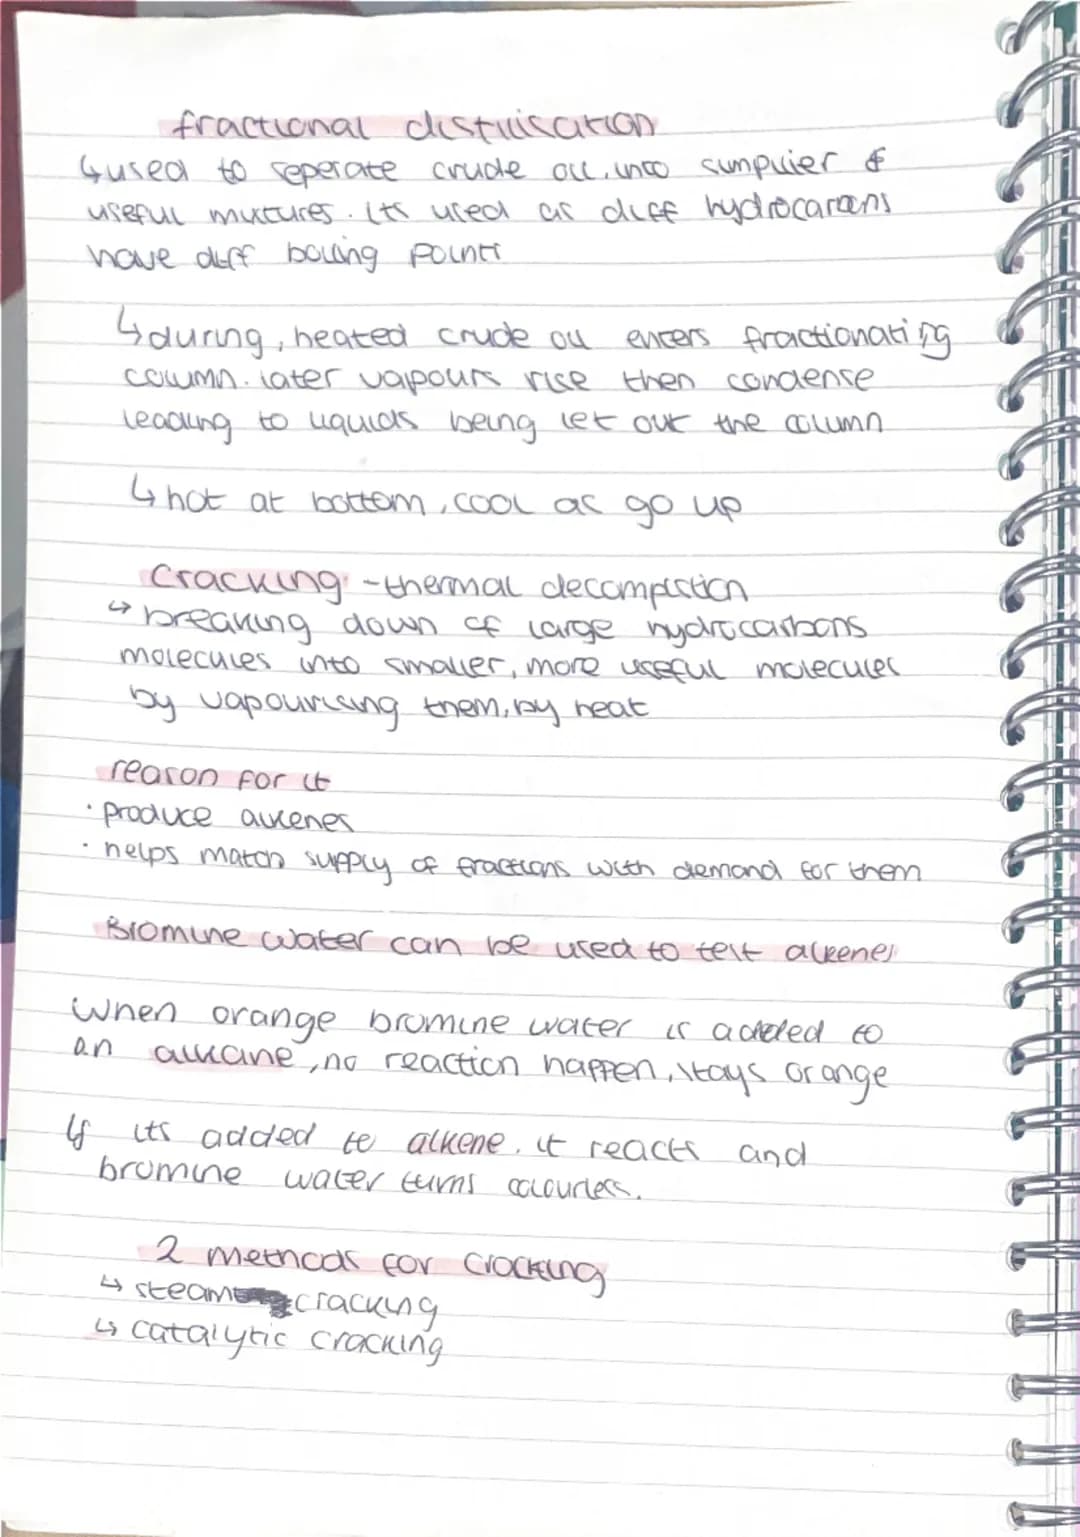 fractional distilisation
↳ used to seperate crude oil, into simplier &
useful mixtures. Its used as diff hydrocarons
have diff boiling points
↳ during, heated crude oil enters fractionating
column. later vapours rise then condense
leading to liquids being let out the column
↳ hot at bottom, cool as go up
Cracking - thermal decompistion
↳ breaking down of large hydrocarbons
molecules into smaller, more useful molecules
by vapourising them, by heat
reason for it
· produce alkenes
· helps match supply of fractions with demand for them
Bromine water can be used to test alkenes
When orange bromine water is added to
an alkane, no reaction happen, stays orange
If its added to alkene, it reacts and
bromine water turns colourless.
2 methods for cracking
↳ steam cracking
↳ catalytic cracking